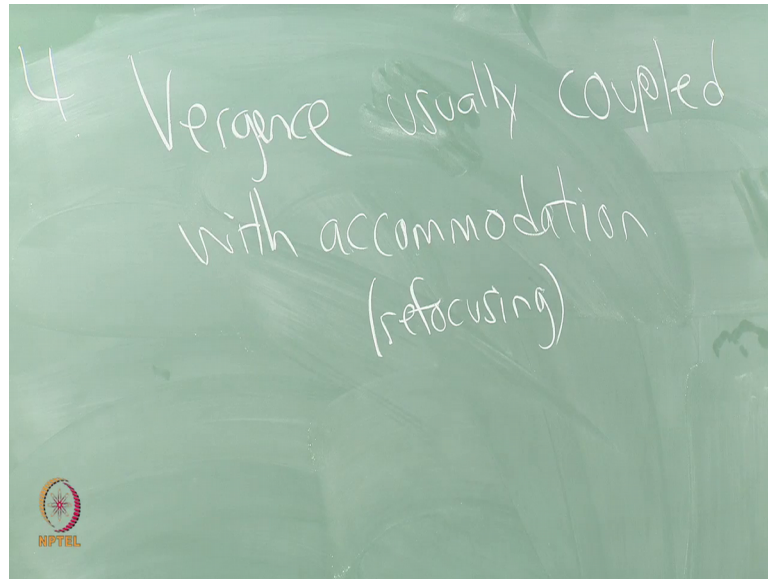 4 Vergence usually coupled
with accommodation
(refocusing)
NPTEL